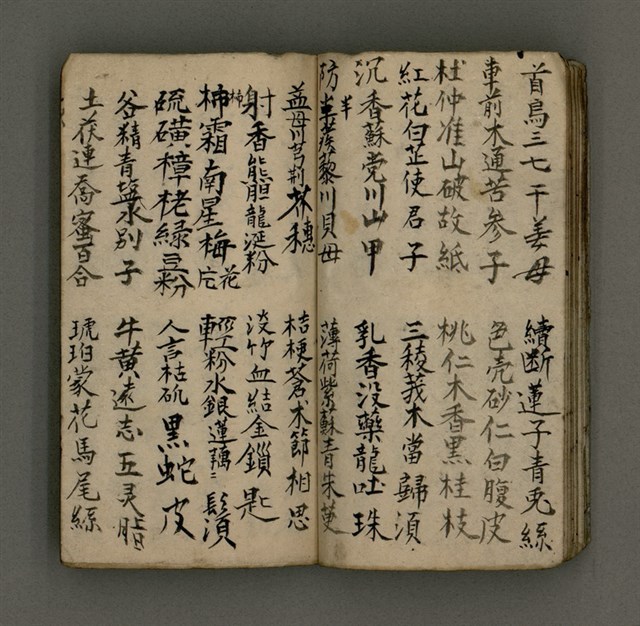 首烏三七干姜母
續斷蓮子青兎絲
車前木通苦参子
色壳砂仁白腹皮
杜仲准山破故紙
桃仁木香黒桂枝
紅花白芷使君子
三稜莪木當歸湏
沉香蘇党川山甲
乳香没藥龍吐珠
防半藜川貝母
薄荷紫蘇青朱
益母川芎荆芥穗
桔梗蒼术節相思
射香熊胆龍涎粉
淡竹血結金鎖匙
柿霜南星梅花片
輕粉水銀蓮藕鬚
硫磺樟栳緑豆粉
人言枯矾黒蛇皮
谷精青塩水别子
牛黄遠志五灵脂
土茯連喬蜜百合
琥珀蒙花馬尾絲